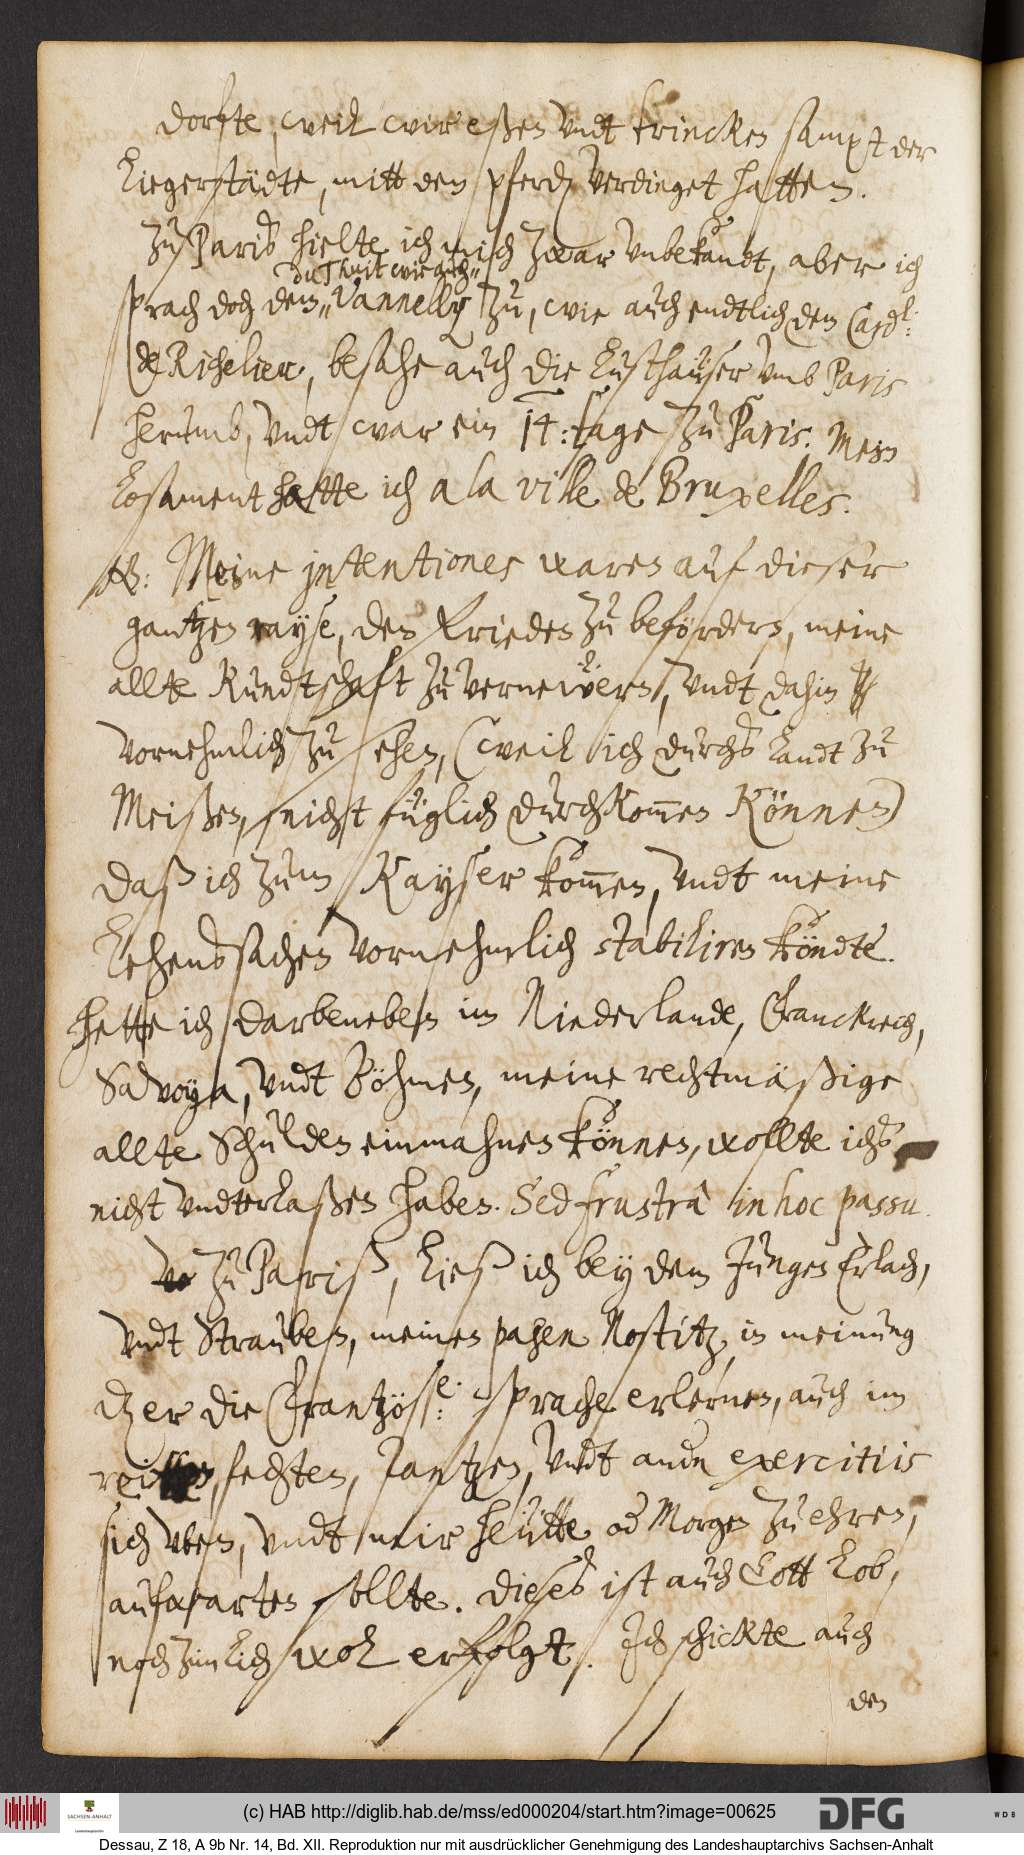 dorfte, weil wir eßen undt trincken sampt der
Liegerstädte, mitt den pferd verdinget hatten.
Zu Paris hielte ich mich zwar unbekandt, aber ich
du Thuit wie auch
sprach doch dem Vannelly zu, wie auch endtlich dem Card.l:
de Richelieu, besahe auch die Lusthaüser umb Paris
herumb, undt war ein 14: tage zu Paris. Mein
Losament hatte ich a la ville de Bruxelles.
NB: Meine intentiones waren auf dieser
gantzen rayse, den Frieden zu befördern, meine
allte Kundtschaft zu verneẅern, undt dahin
vornehmlich zu sehen, (weil ich durchs Landt zu
Meißen, nicht füglich durchkom̄en können)
daß ich zum Kayser kom̄en, undt meine
Lehenssachen vornehmlich stabiliren köndte.
Hette ich darbeneben im Niederlande, Franckreich,
Savoya, undt Böhmen, meine rechtmäßige
allte Schulden einmahnen können, wollte ichs
nicht undterlaßen haben. Sed frustrà in hoc passu.
Zu Pariß, ließ ich bey dem Jungen Erlach,
undt Strauben, meinen pagen Nostitz, in meinung
dz er die Frantzös.e: sprache erlernen, auch im
reitten, fechten, Tantzen, undt andn exercitiis
sich üben, undt mir heütte od Morgen zu ehren,
aufwarten sollte. Dieses ist auch Gott Lob,
noch zimlich wol erfolgt. Ich schickte auch
den
(c) HAB http://diglib.hab.de/mss/ed000204/start.htm?image=00625
SACHSEN-ANHALT
DFG
WDB
Dessau, Z 18, A 9b Nr. 14, Bd. XII. Reproduktion nur mit ausdrücklicher Genehmigung des Landeshauptarchivs Sachsen-Anhalt